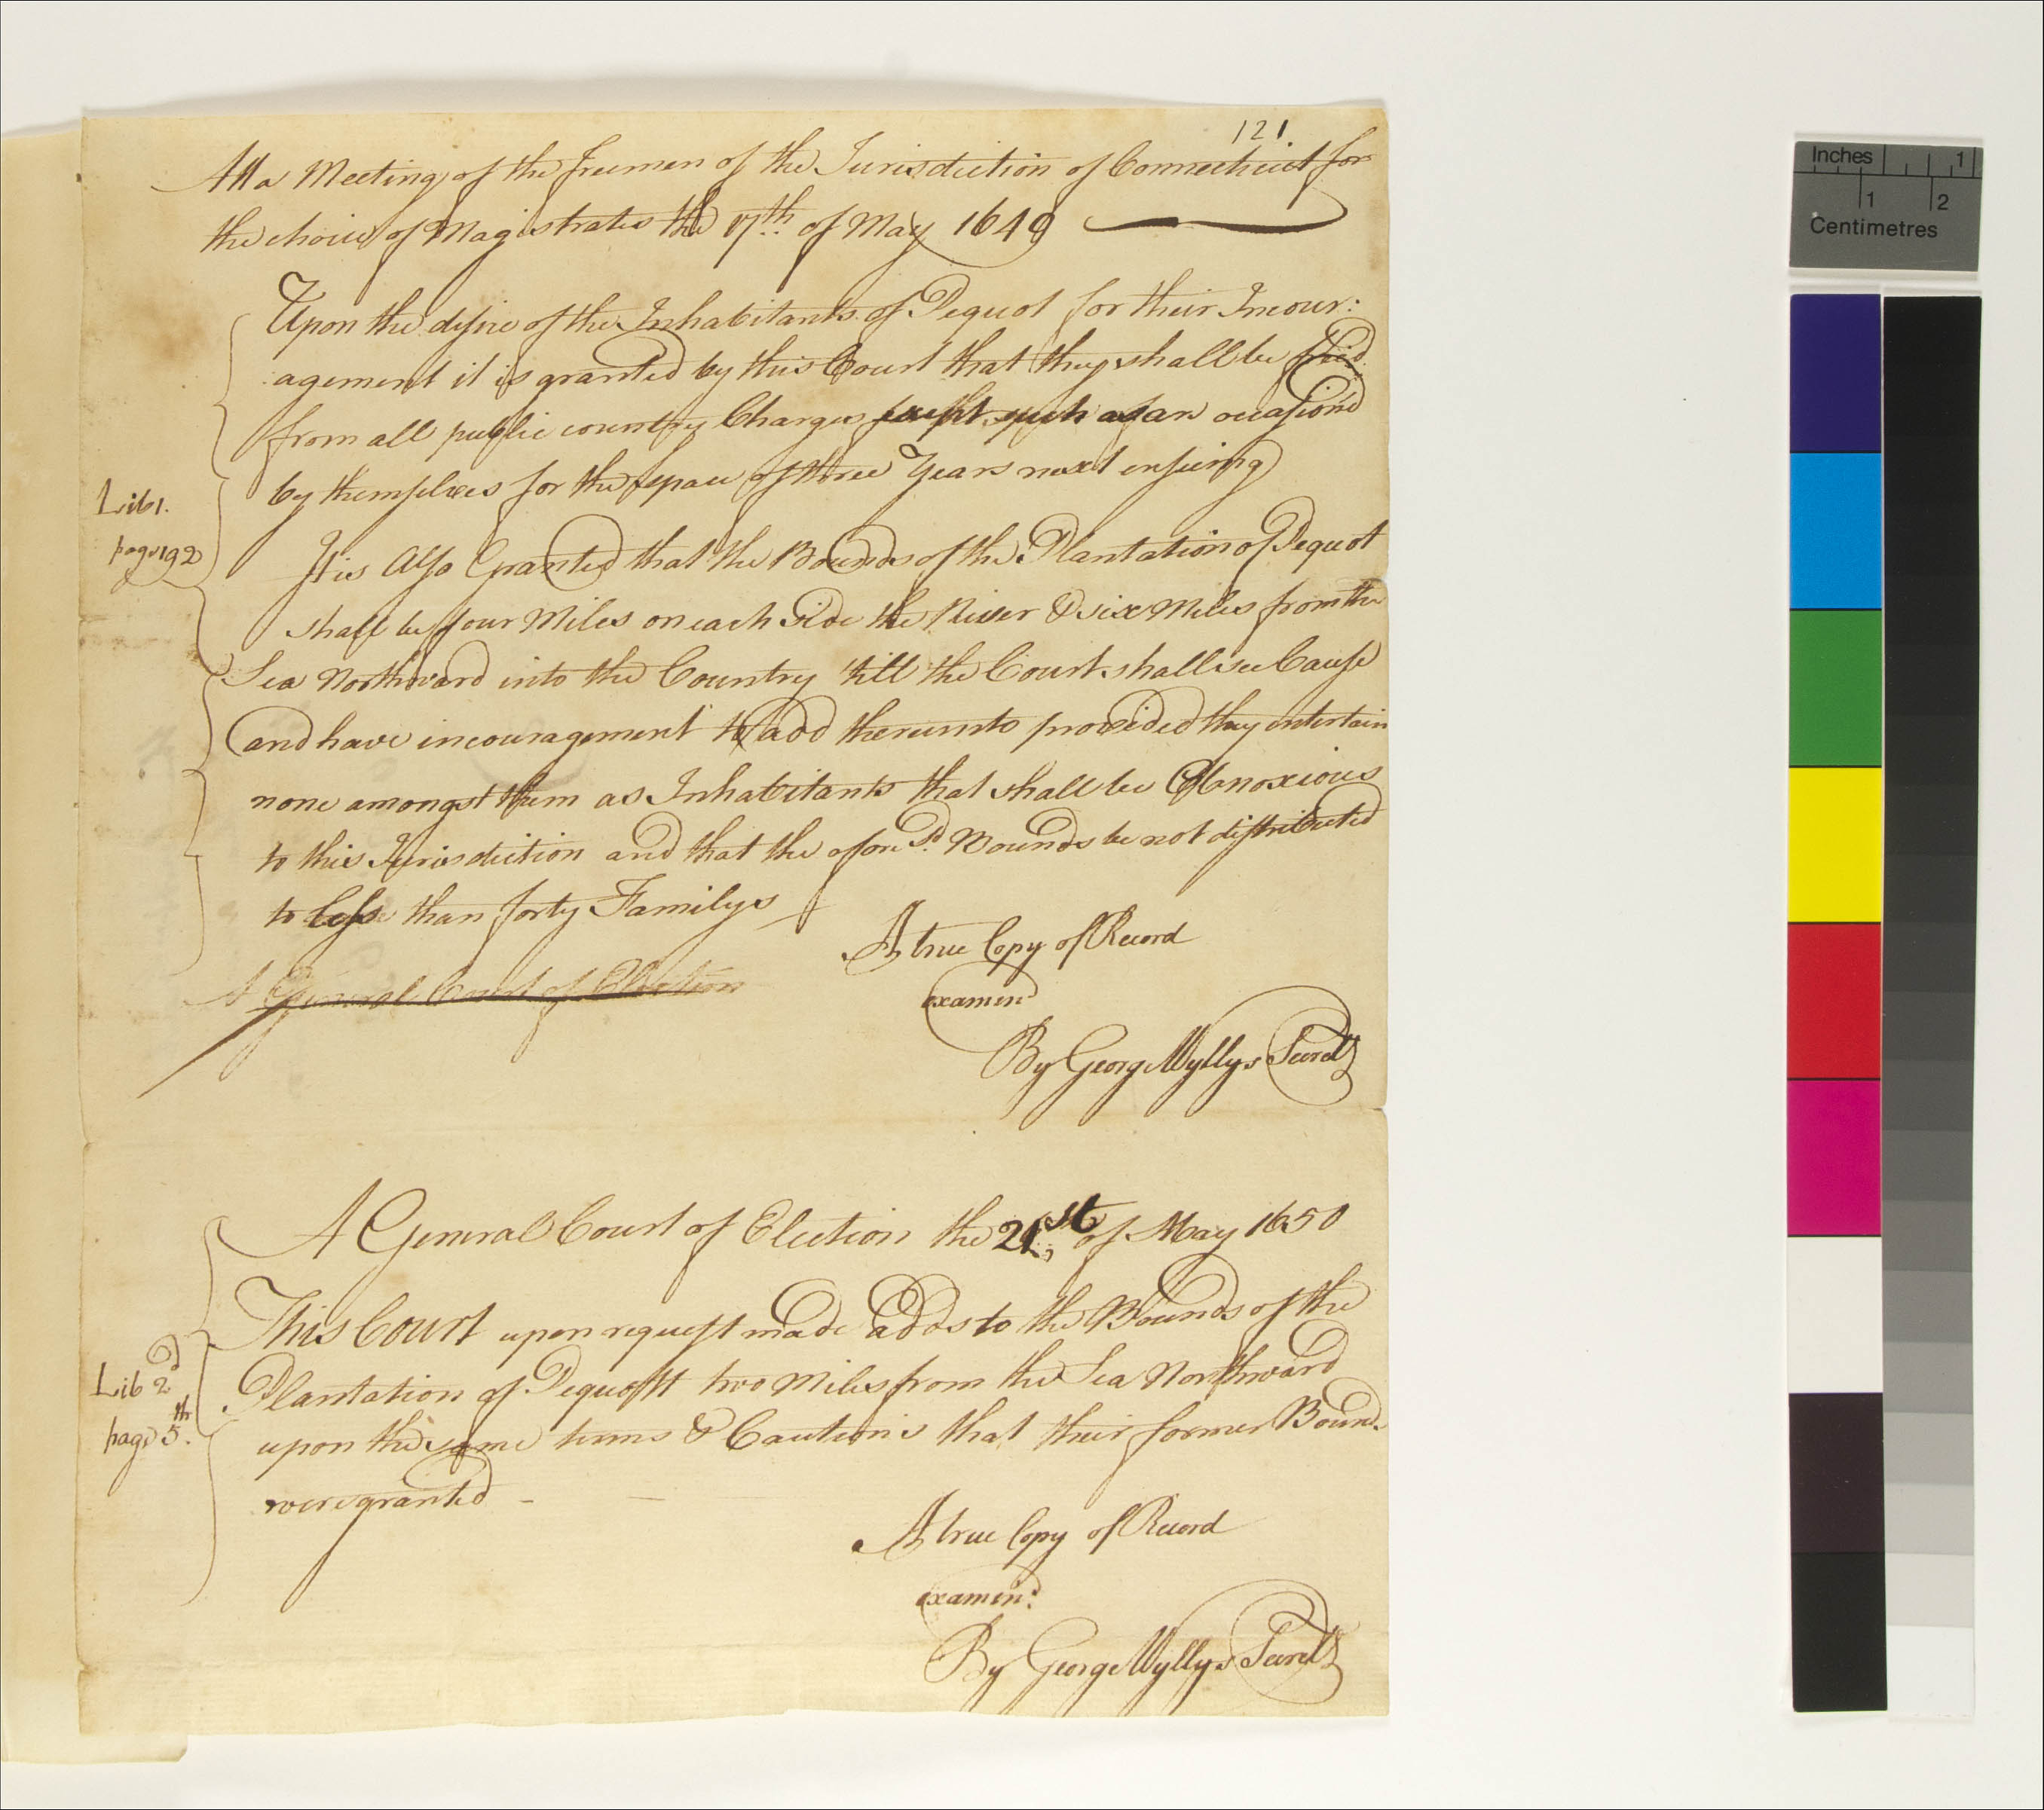 121
Att a Meeting of the freemen of the Jurisdiction of Connecticut for
the choice of Magistrates the 17th of May 1649
Upon the desire of the Inhabitants of Pequot for their Incour:
agement it is granted by this Court that they shall be free'd
from all public country Charges except such as are occasion'd
by themselves for the space of three Years next ensueing
Lib 1.
page 192
It is Also Granted that the Bounds of the Plantation of Pequot
shall be four Miles on each side the River & six Miles from the
Sea Northward into the Country 'till the Court shall see Cause
and have incouragement to add thereunto provided they entertain
none amongst them as Inhabitants that shall be Obnoxious
to this Jurisdiction and that the afore sd. Bounds be not distributed
to less than forty Familys
A true Copy of Record
A General Court of Election
examind
By George Wyllys Secret'y
A General Court of Election the 21st of May 1650
This Court upon request made adds to the Bounds of the
Lib 2d
page 5th.
Plantation of Pequott two Miles from the Sea Northward
upon the same terms & Cautions that their former Bounds
were granted
A true Copy of Record
examin:
By George Wyllys Secret'y
Inches 1
1 2
Centimetres